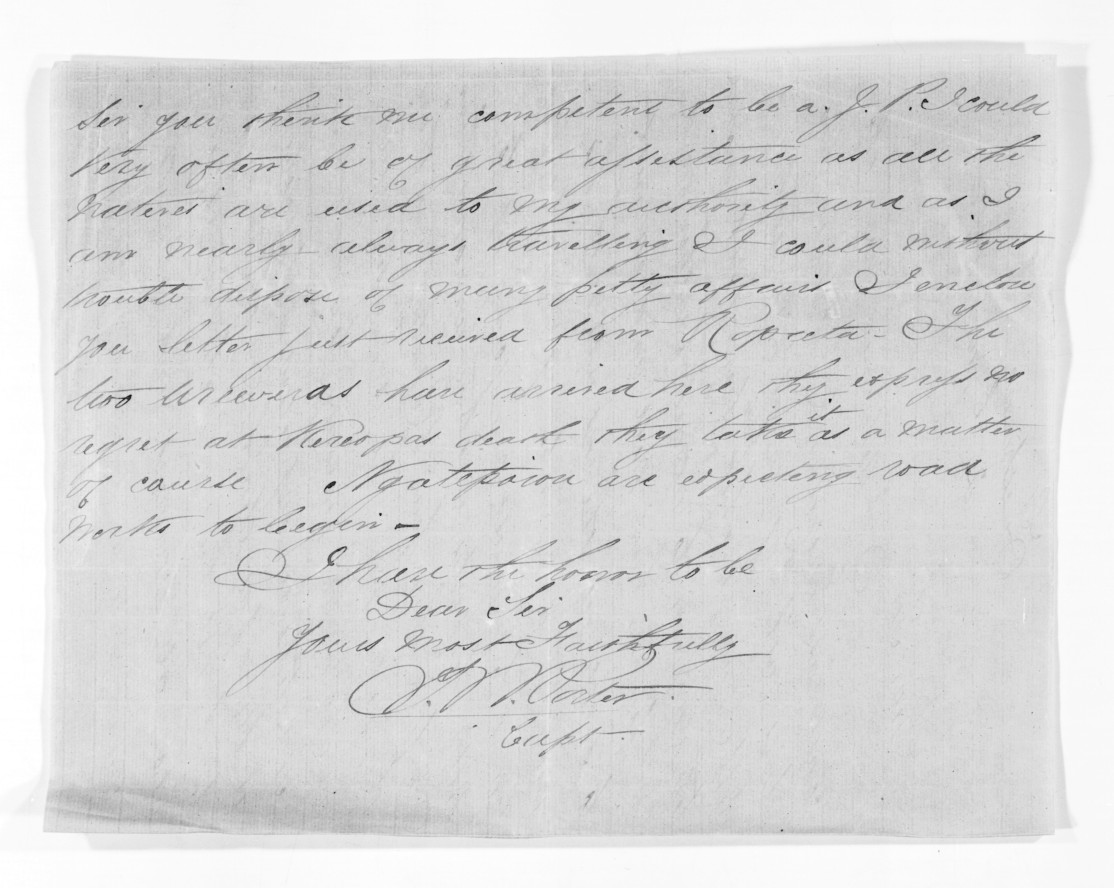 Sir you think me competent to be a J. P. I could
very often be of great assistance as all the
natives are used to my authority and as I
am nearly always travelling I could without
trouble dispose of many petty affairs I enclose
you letter just received from Ropata - The
two Urewera's have arrived here they express no
regret at Kereopas death they take it as a matter
of course Ngatiporou are expecting road
works to begin -
I have the honor to be
Dear Sir
Yours most Faithfully
T. W. Porter
Capt